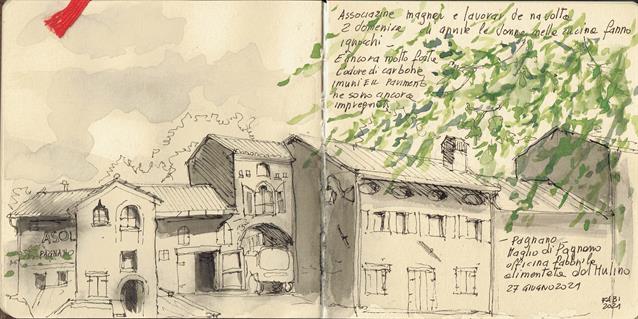 Associazine magner e lavorar de na volta
2 domenica di aprile le donne nella cucina fanno
ignocchi
E' ancora molto forte
l'odore di carbone
i muri e il pavimento
ne sono ancora
impregnati
ASOL
PAGNANO
- Pagnano -
Maglio di Pagnano
officina fabbrile
alimentata dal Mulino
27 giugno 2021
FABI
2021